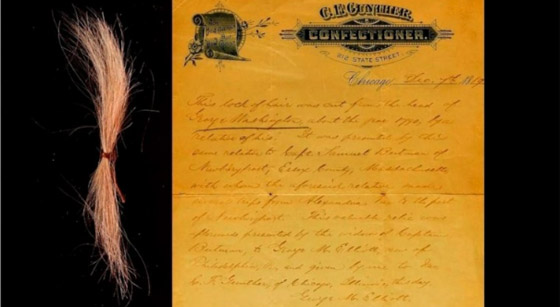 C. F. GUNTHER,
CONFECTIONER.
212 STATE STREET.
Chicago, Dec. 7th 18
This lock of hair was cut from the head of
George Washington about the year 1790, by a
relative of his. It was presented by this
same relative to Capt. Samuel
Newburyport, Essex County, Massachusetts
with whom the aforesaid relative made
from Alexandria Va. to the port
of Newburyport. This valuable relic was
presented by the widow of Captain
to George M. Elliott, of
Philadelphia, and given by me to Mr.
C. F. Gunther, of Chicago, Illinois, this day
George M. Elliott.